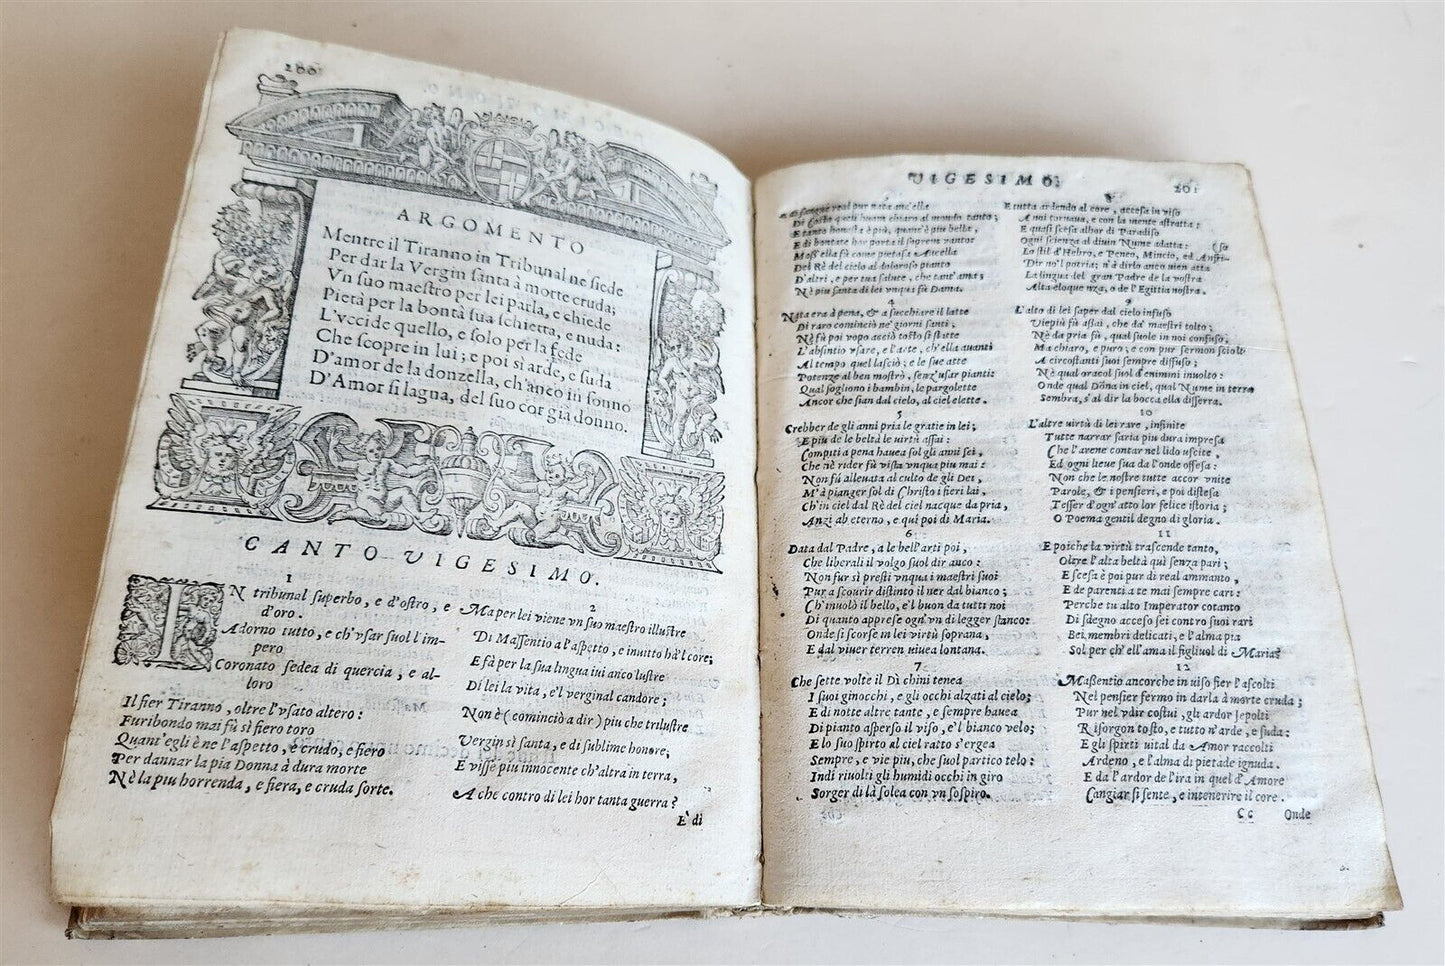 200
ARGOMENTO
Mentre il Tiranno in Tribunal ne siede
Per dar la Vergin santa à morte cruda;
Vn suo maestro per lei parla, e chiede
Pietà per la bontà sua schietta, e nuda:
L'vccide quello, e solo per la fede
Che scopre in lui; e poi sì arde, e suda
D'amor de la donzella, ch'anco in sonno
D'Amor si lagna, del suo cor già donno.
CANTO VIGESIMO.
1
IN tribunal superbo, e d'ostro, e
d'oro.
Adorno tutto, e ch'vsar suol l'im-
pero
Coronato sedea di quercia, e al-
loro
Il fier Tiranno, oltre l'vsato altero:
Furibondo mai fù sì fiero toro
Quant'egli è ne l'aspetto, e crudo, e fiero
Per dannar la pia Donna à dura morte
Nè la piu horrenda, e fiera, e cruda sorte.
2
Ma per lei viene vn suo maestro illustre
Di Massentio a l'aspetto, e inuitto hà'l core;
E fà per la sua lingua iui anco lustre
Di lei la vita, e'l verginal candore;
Non è (cominciò a dir) piu che trilustre
Vergin sì santa, e di sublime honore;
E visse piu innocente ch'altra in terra,
A che contro di lei hor tanta guerra?
E' di
VIGESIMO.
201
di sangue real pur nata anc'ella
Di Costo quell'huom chiaro al mondo tanto;
E tanto honesta è più, quant'è piu bella,
E di bontate hor porta il soprem vantor
Moss'ella fù come pietosa Ancella
Del Rè del cielo al doloroso pianto
D'altri, e per tua salute, che tant'ama;
Nè piu santa di lei vnqua fù Dama.
4
Nata era à pena, & a succhiare il latte
Di raro cominciò ne' giorni santi;
Nè fù poi vopo acciò tosto si slatte
L'absintio vsare, e l'arte, ch'ella auanti
Al tempo quel lasciò; e le sue atte
Potenze al ben mostrò, senz'usar pianti:
Qual sogliono i bambin, le pargolette
Ancor che sian dal cielo, al ciel elette.
5
Crebber de gli anni pria le gratie in lei;
E piu de le beltà le virtù assai:
Compiti a pena hauea sol gli anni sei,
Che nè rider fù vista vnqua piu mai:
Non fù alleuata al culto de gli Dei,
M'à pianger sol di Christo i fieri lai,
Ch'in ciel dal Rè del ciel nacque da pria,
Anzi ab eterno, e qui poi di Maria.
6
Data dal Padre, a le bell'arti poi,
Che liberali il volgo suol dir anco:
Non fur sì presti vnqua i maestri suoi
Pur a scourir distinto il ner dal bianco;
Ch'inuolò il bello, e'l buon da tutti noi
Di quanto apprese ogn'vn di legger stanco:
Onde si scorse in lei virtù soprana,
E dal viuer terren viuea lontana.
7
Che sette volte il Dì chini tenea
I suoi ginocchi, e gli occhi alzati al cielo;
E di notte altre tante, e sempre hauea
Di pianto asperso il viso, e'l bianco velo;
E lo suo spirto al ciel ratto s'ergea
Sempre, e vie piu, che suol partico telo:
Indi riuolti gli humidi occhi in giro
Sorger di là solea con vn sospiro.
8
E tutta ardendo al core, accesa in viso
A noi tornaua, e con la mente astratta:
E quasi scesa alhor di Paradiso
Ogni scienza al diuin Nume adatta: (so
Lo stil d'Hebro, e Peneo, Mincio, ed Anfri-
Dir no'l potria; n'à dirlo anco uien atta
La lingua del gran Padre de la nostra
Alta eloquenza, o de l'Egittia nostra.
9
L'alto di lei saper dal cielo infuso
Viepiù fù assai, che da' maestri tolto;
Nè da pria fù, qual suole in noi confuso;
Ma chiaro, e puro; e con pur sermon sciolto
A circostanti suoi sempre diffuso;
Nè qual oracol suol d'enimmi inuolto:
Onde qual Dōna in ciel, qual Nume in terra
Sembra, s'al dir la bocca ella disserra.
10
L'altre virtù di lei rare, infinite
Tutte narrar saria piu dura impresa
Che l'arene contar nel lido uscite,
Ed ogni lieue sua da l'onde offesa:
Non che le nostre tutte accor vnite
Parole, & i pensieri, e poi distesa
Tesser d'ogn'atto lor felice istoria;
O Poema gentil degno di gloria.
11
E poiche la virtù trascende tanto,
Oltre l'alta beltà quì senza pari;
E scesa è poi pur di real ammanto,
E de parenti a te mai sempre cari:
Perche tu alto Imperator cotanto
Di sdegno acceso sei contro suoi rari
Bei membri delicati, e l'alma pia
Sol per ch'ell'ama il figliuol di Maria?
12
Massentio ancorche in uiso fier l'ascolti
Nel pensier fermo in darla à morte cruda;
Pur nel vdir costui, gli ardor sepolti
Risorgon tosto, e tutto n'arde, e suda:
E gli spirti uital da Amor raccolti
Ardeno, e l'alma di pietade ignuda.
E da l'ardor de l'ira in quel d'Amore
Cangiar si sente, e intenerire il core.
Cc
Onde